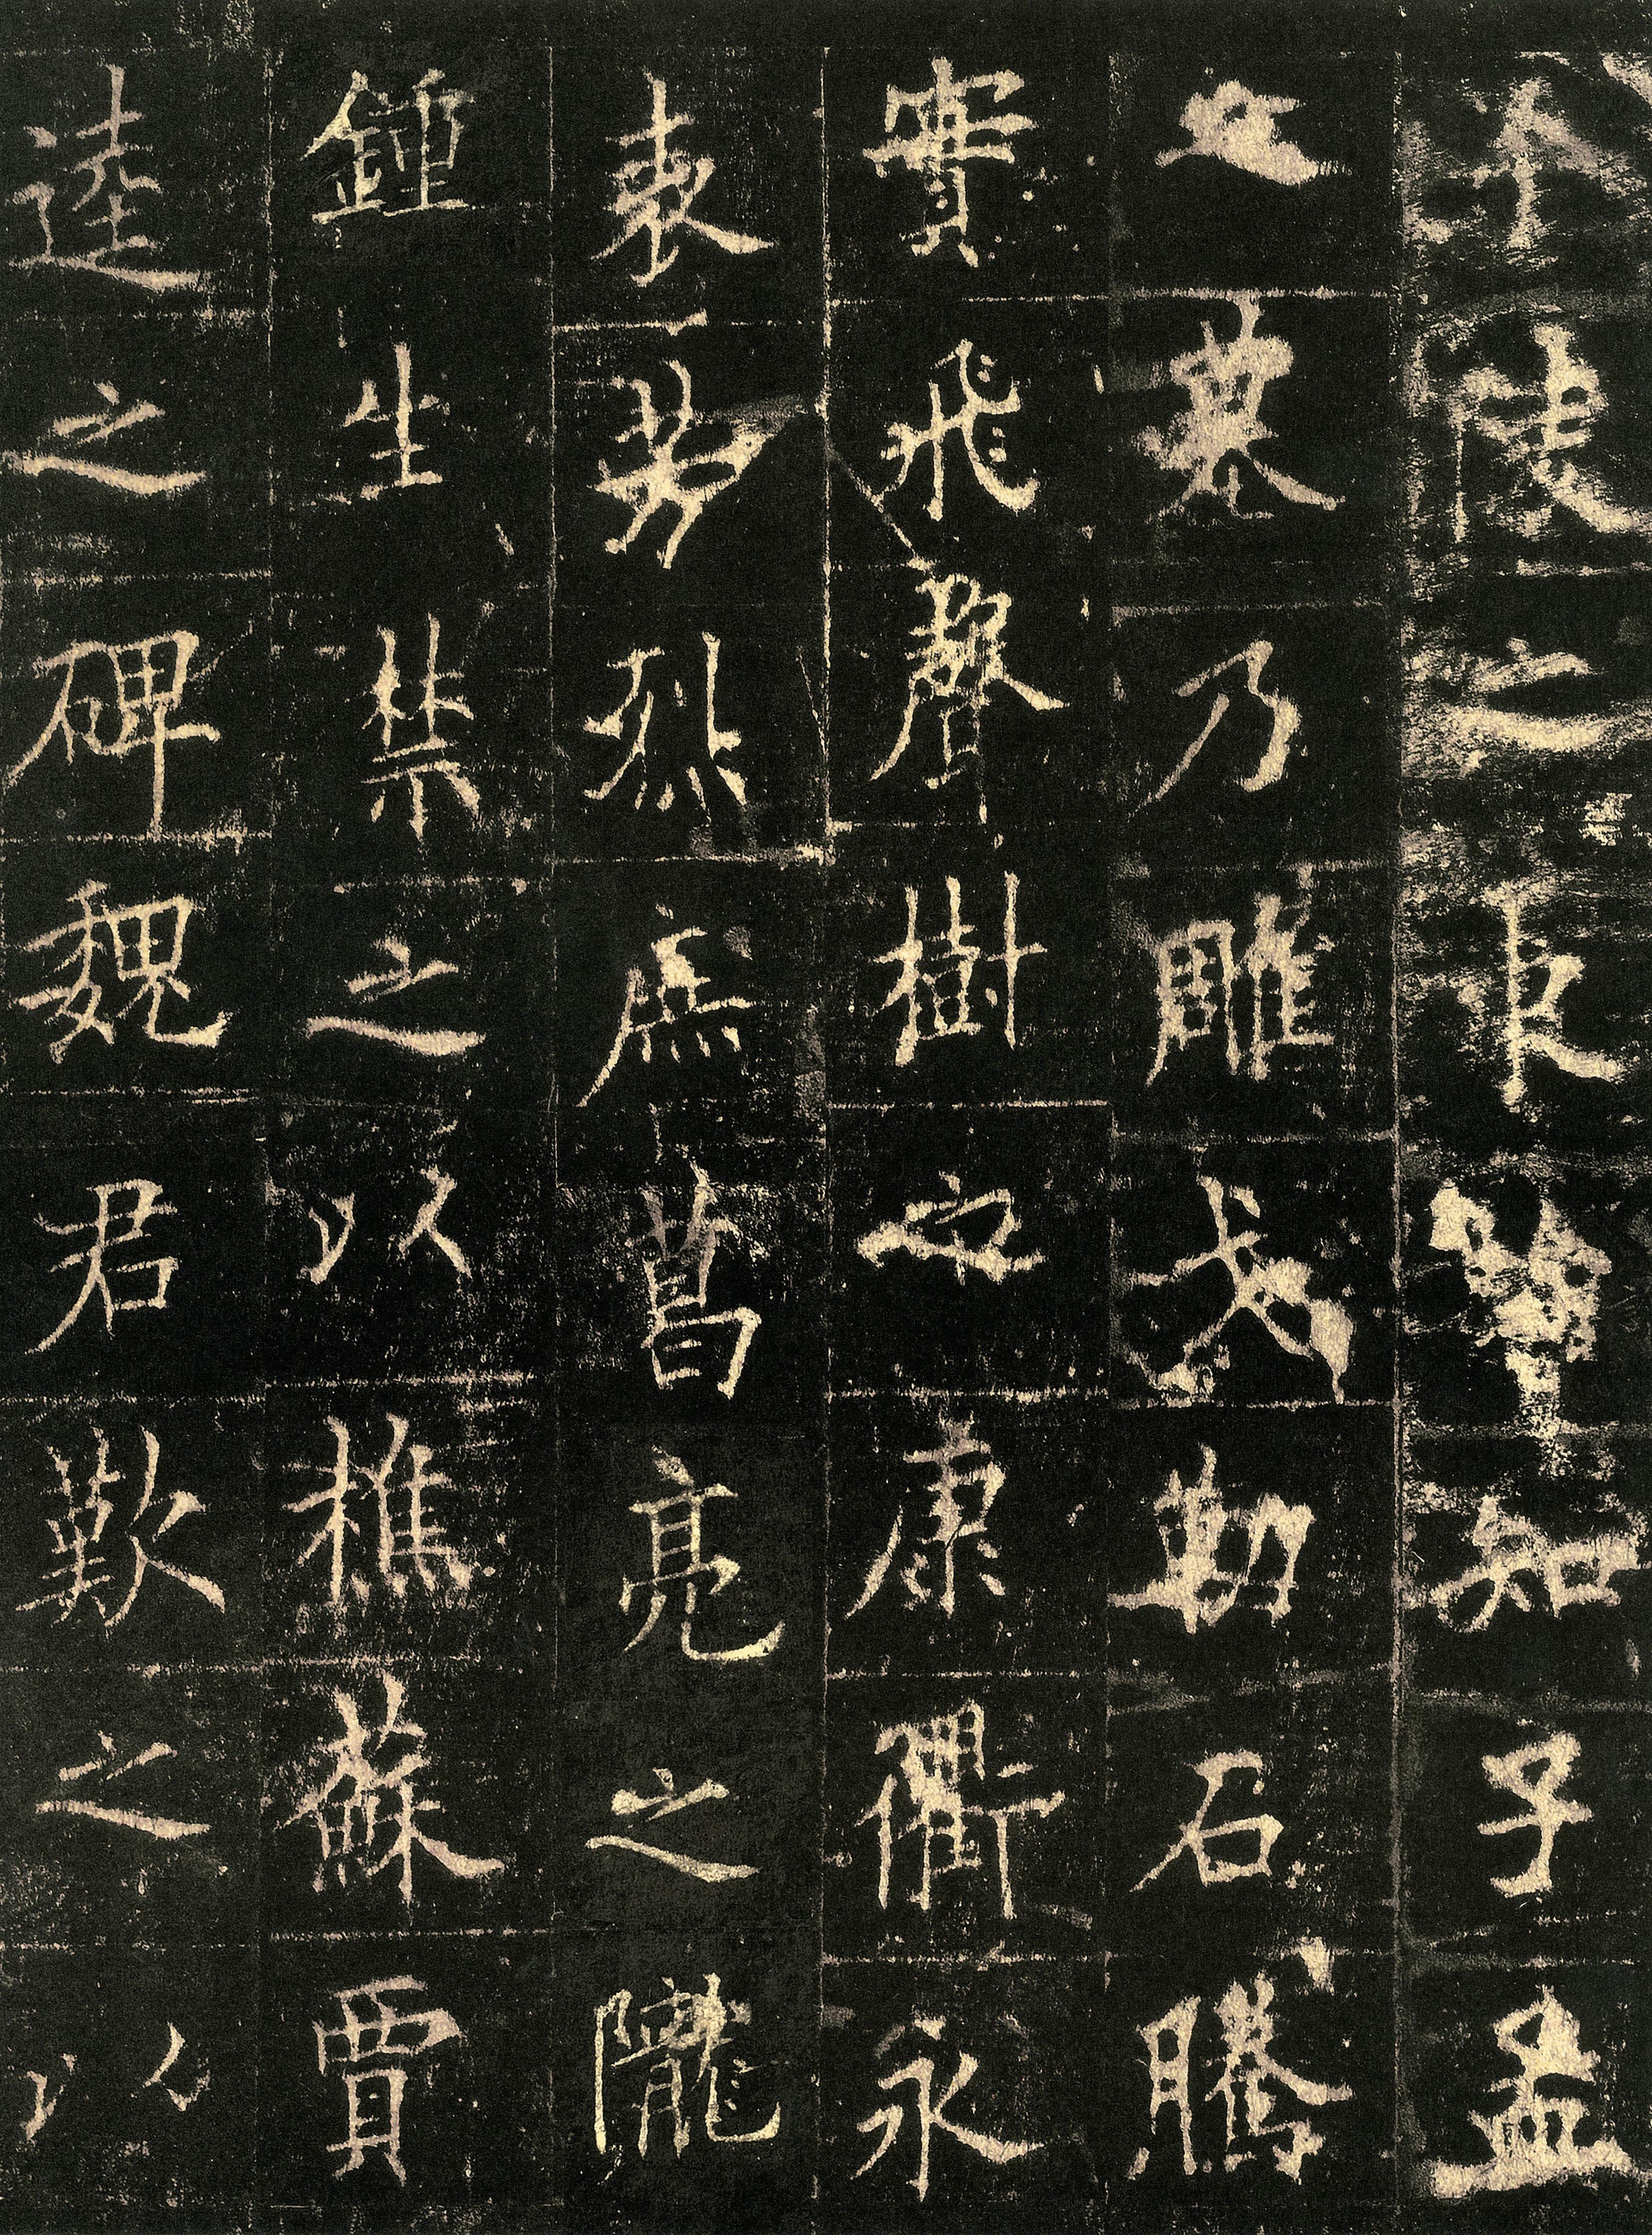 陵之知子孟
之墓乃雕戈勒石騰
實飛聲樹之康衢永
表芳烈庶葛亮之隴
鍾生禁之以樵蘇賈
逵之碑魏君歎之以